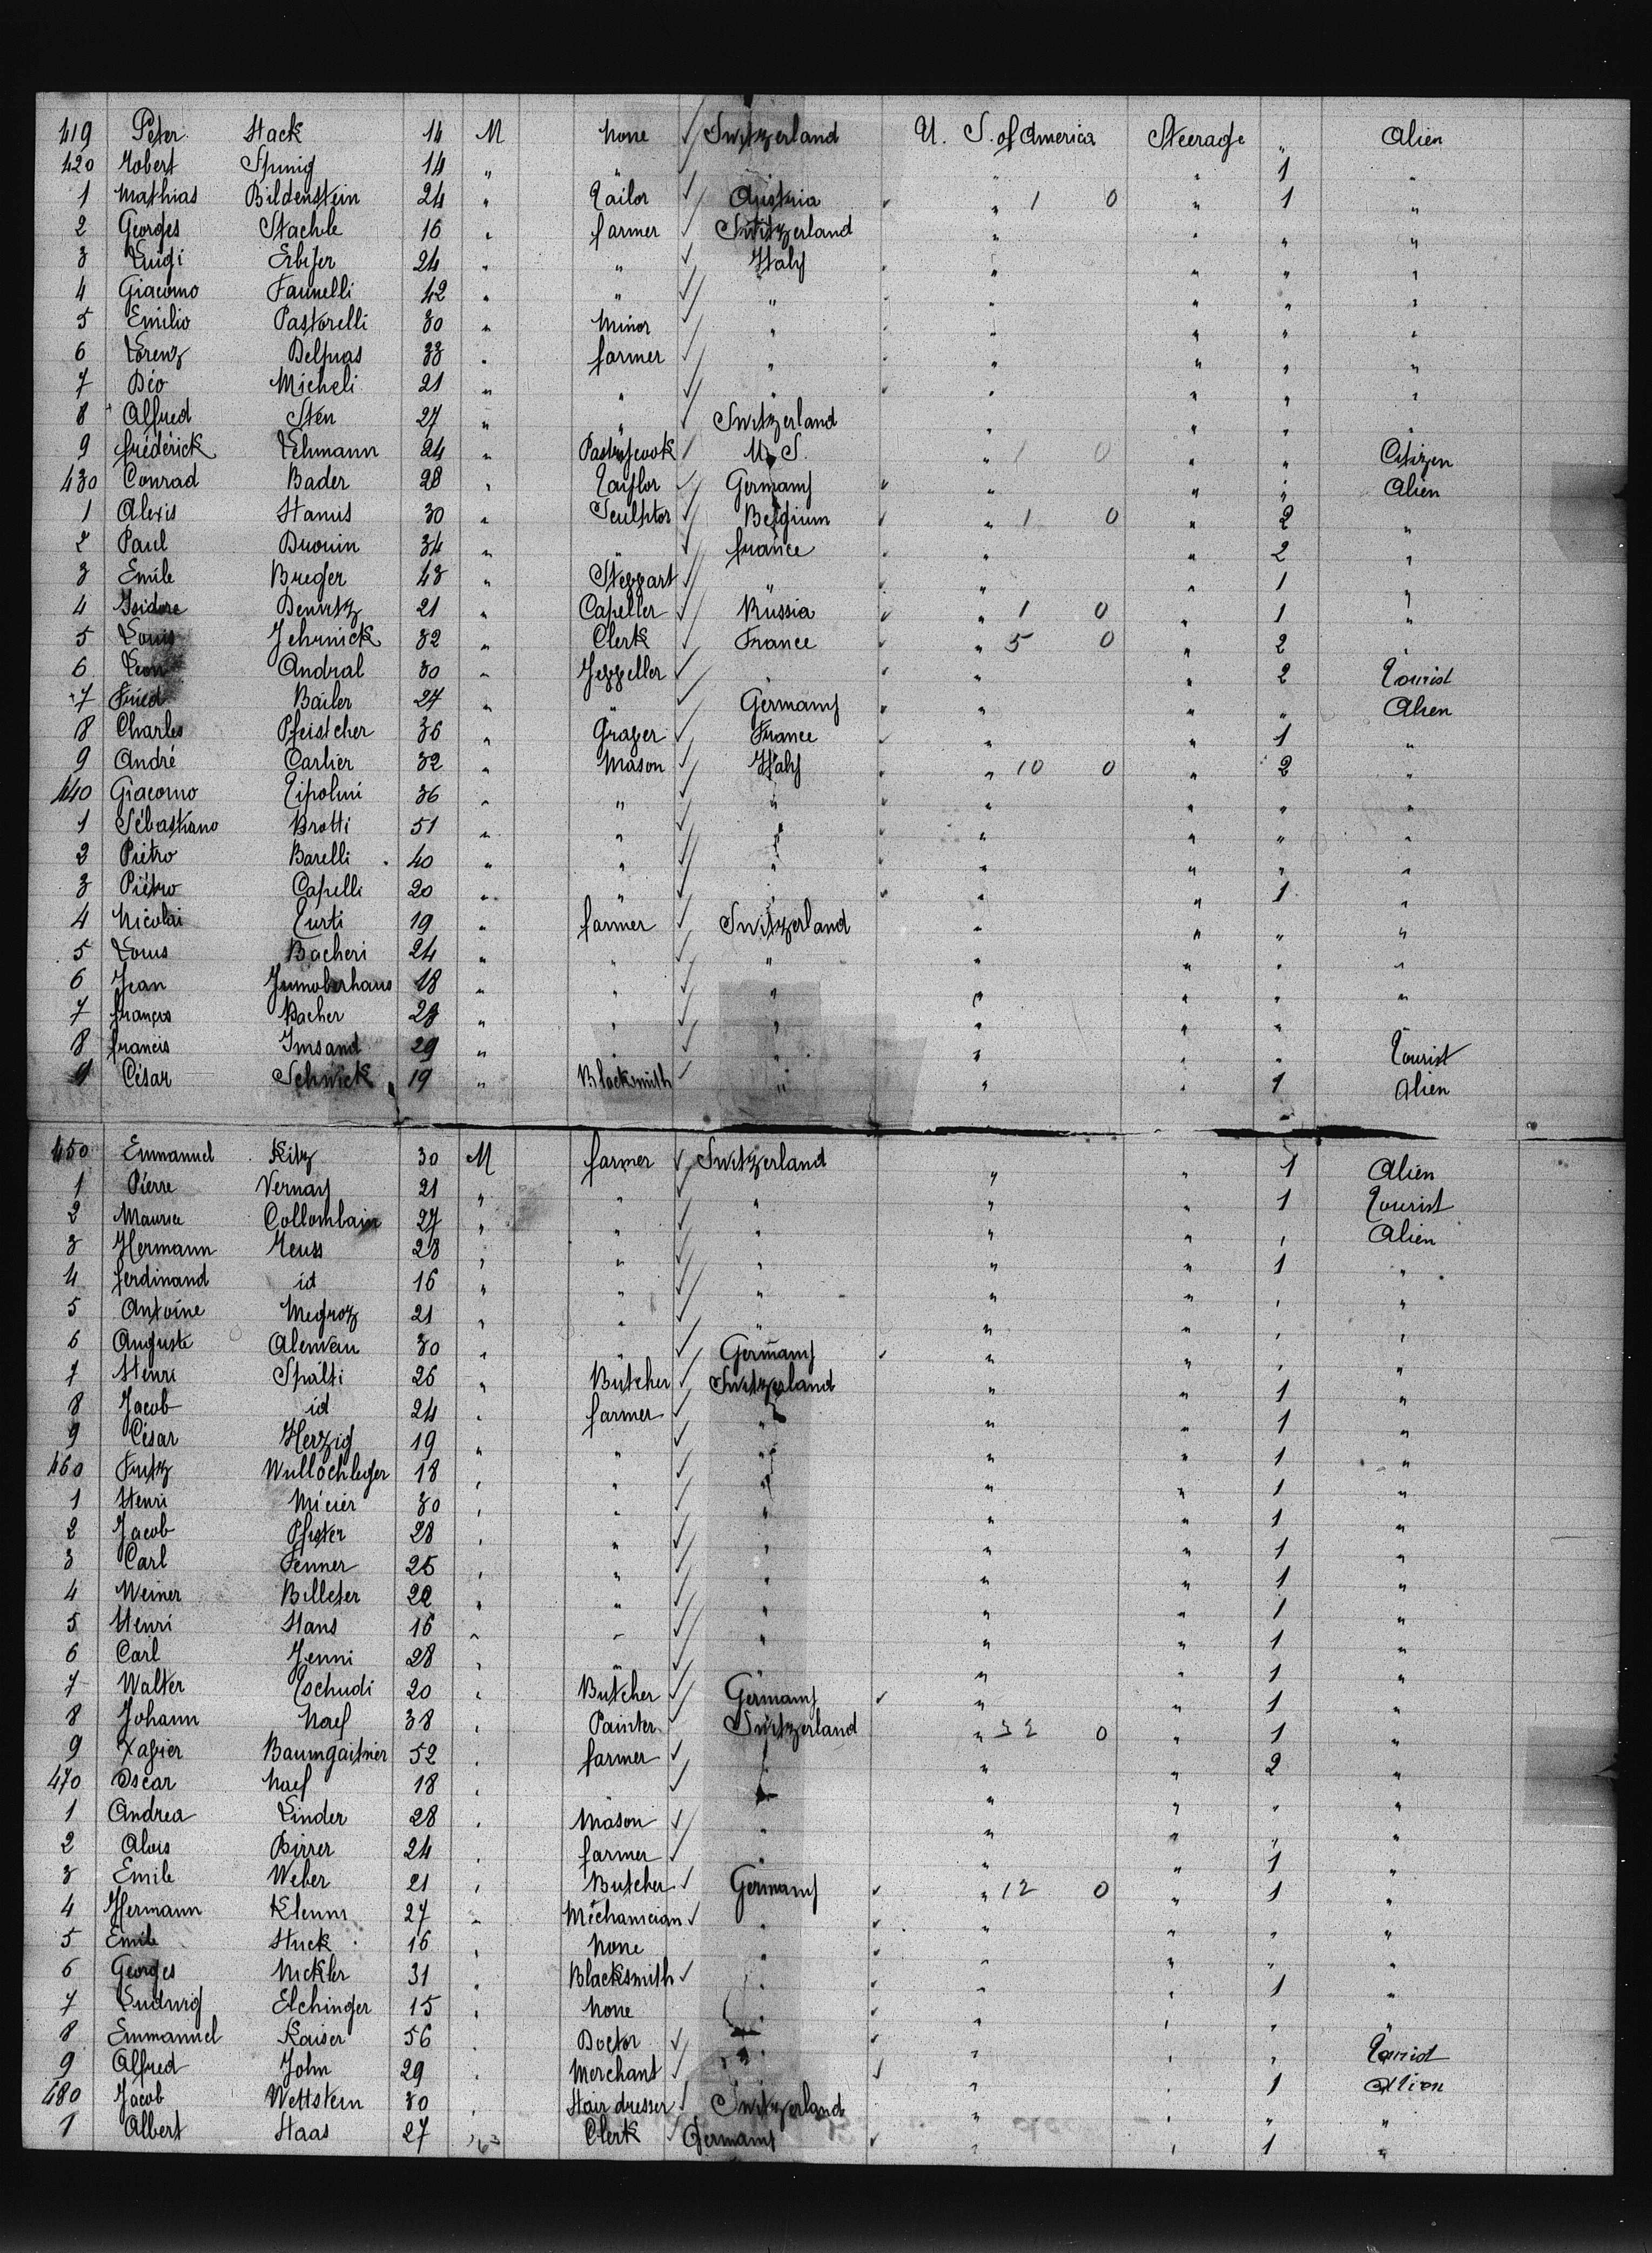 419 Peter Hack 14 M None Switzerland U. S. of America Steerage " Alien
420 Robert 14 " " " " " 1 "
1 Mathias Bildenstein 24 " Tailor Austria " 1 0 " 1 "
2 Georges Staehle 16 " farmer Switzerland " " " "
3 Luigi 24 " " Italy " " " "
4 Giacomo Fannelli 42 " " " " " " "
5 Emilio Pastorelli 30 " Minor " " " " "
6 Lorenz Delpuas 33 " farmer " " " " "
7 Déo Micheli 21 " " " " " " "
8 Alfred Sten 27 " " Switzerland " " " "
9 frédérick Lehmann 24 " Pastrycook U. S. " 1 0 " " Citizen
430 Conrad Bader 28 " Taylor Germany " " " Alien
1 Alexis Hanus 30 " Sculptor Belgium " 1 0 " 2 "
2 Paul Drouin 34 " " france " " 2 "
3 Emile Breger 43 " Steppart " " " 1 "
4 Isidore 21 " Capeller Russia " 1 0 " 1 "
5 Louis Jehrnick 32 " Clerk France " 5 0 " 2 "
6 Leon Andral 30 " Jeppeller " " " 2 Tourist
7 Fried Bailer 27 " " Germany " " " Alien
8 Charles Pfeistcher 36 " Graver France " " 1 "
9 André Carlier 32 " Mason Italy " 10 0 " 2 "
440 Giacomo Tipolini 36 " " " " " " "
1 Sébastiano Brotti 51 " " " " " " "
2 Piétro Barelli 40 " " " " " " "
3 Piétro Capelli 20 " " " " " 1 "
4 Nicolai Curti 19 " farmer Switzerland " " " "
5 Louis Bacheri 24 " " " " " " "
6 Jean Jmmoberhaus 18 " " " " " " "
7 françois Bacher 28 " " " " " "
8 francis Imsand 29 " " " " " " Tourist
9 César Schwick 19 " Blacksmith " " " 1 Alien
450 Emmanuel Kitz 30 M farmer Switzerland " " 1 Alien
1 Pierre Vernay 21 " " " " " 1 Tourist
2 Maurice Collombain 27 " " " " " " Alien
3 Hermann Jeuss 28 " " " " " 1 "
4 ferdinand id 16 " " " " " " "
5 Antoine Megroz 21 " " " " " " "
6 Auguste 30 " " Germany " " " "
7 Henri Spälti 26 " Butcher Switzerland " " 1 "
8 Jacob id 24 " farmer " " " 1 "
9 César Herzig 19 " " " " " 1 "
460 Fritz Wullschleger 18 " " " " " 1 "
1 Henri Meier 30 " " " " " 1 "
2 Jacob Pfister 28 " " " " " 1 "
3 Carl Fenner 25 " " " " " 1 "
4 Weiner Billeter 22 " " " " " 1 "
5 Henri Hans 16 " " " " " 1 "
6 Carl Jenni 28 " " " " " 1 "
7 Walter Tschudi 20 " Butcher Germany " " 1 "
8 Johann Naef 38 " Painter Switzerland " 32 0 " 1 "
9 Xavier Baumgartner 52 " farmer " " " 2 "
470 Oscar Naef 18 " " " " " "
1 Andrea Linder 28 " Mason " " " " "
2 Alois Birrer 24 " farmer " " " 1 "
3 Emile Weber 21 " Butcher Germany " 12 0 " 1 "
4 Hermann Klemm 27 " Méchanician " " " " "
5 Emile Huck 16 " None " " " " "
6 Georges Nickler 31 " Blacksmith " " " 1 "
7 Ludwig Elchinger 15 " None " " " " "
8 Emmanuel Kaiser 56 " Doctor " " " Tourist
9 Alfred John 29 " Merchant " " " 1 Alien
480 Jacob Wettstein 30 " Hair dresser Switzerland " " " "
1 Albert Haas 27 " Clerk Germany " " 1 "